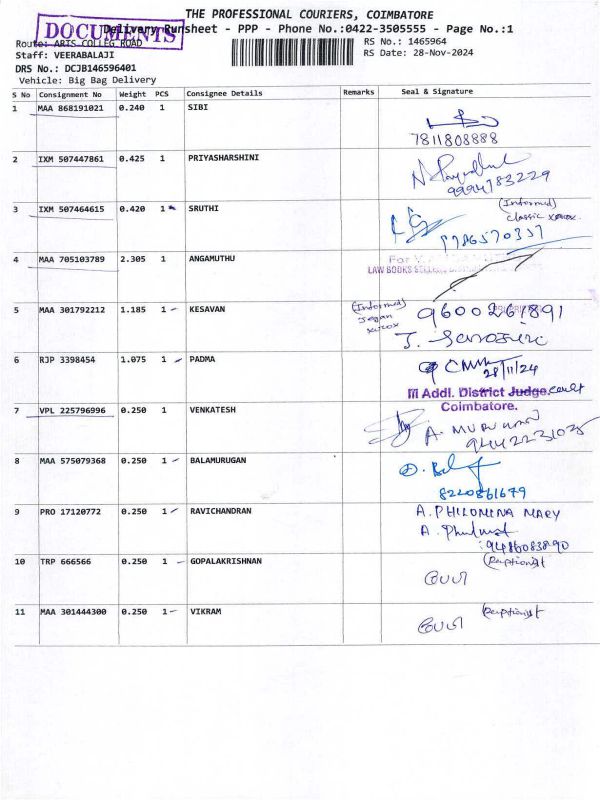 THE PROFESSIONAL COURIERS, COIMBATORE
DOCUMENTS
Delivery Runsheet - PPP - Phone No.:0422-3505555 - Page No.:1
Route: ARTS COLLEG ROAD
RS No.: 1465964
Staff: VEERABALAJI
RS Date: 28-Nov-2024
DRS No.: DCJB146596401
Vehicle: Big Bag Delivery
S No Consignment No Weight PCS Consignee Details Remarks Seal & Signature
1 MAA 868191021 0.240 1 SIBI
7811808888
2 IXM 507447861 0.425 1 PRIYASHARSHINI
9994783229
3 IXM 507464615 0.420 1 SRUTHI
(Informed)
classic xerox.
9786570357
4 MAA 705103789 2.305 1 ANGAMUTHU
For
LAW BOOKS
5 MAA 301792212 1.185 1 KESAVAN
(Informed)
Jegan
xerox
9600267891
6 RJP 3398454 1.075 1 PADMA
28/11/24
III Addl. District Judge court
Coimbatore.
7 VPL 225796996 0.250 1 VENKATESH
A. MURUGAN
8 MAA 575079368 0.250 1 BALAMURUGAN
8220861679
9 PRO 17120772 0.250 1 RAVICHANDRAN
A. PHILOMINA MARY
9486083890
10 TRP 666566 0.250 1 GOPALAKRISHNAN
(Receptionist
11 MAA 301444300 0.250 1 VIKRAM
(Receptionist